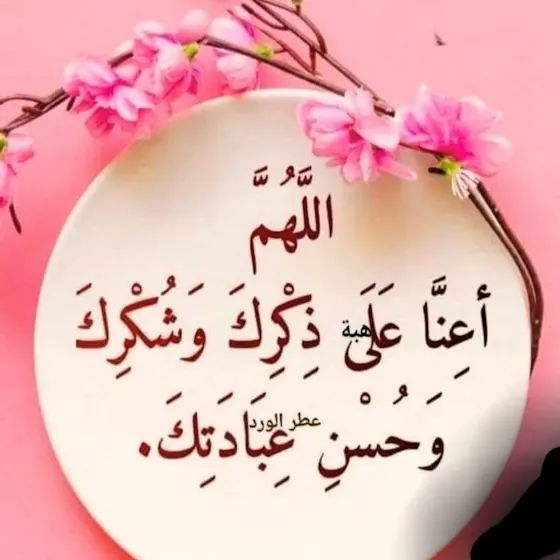 اللَّهُمَّ
أعِنَّا عَلَى ذِكْرِكَ وَشُكْرِكَ
هبة
وَحُسْنِ عِبَادَتِكَ.
عطر الورد